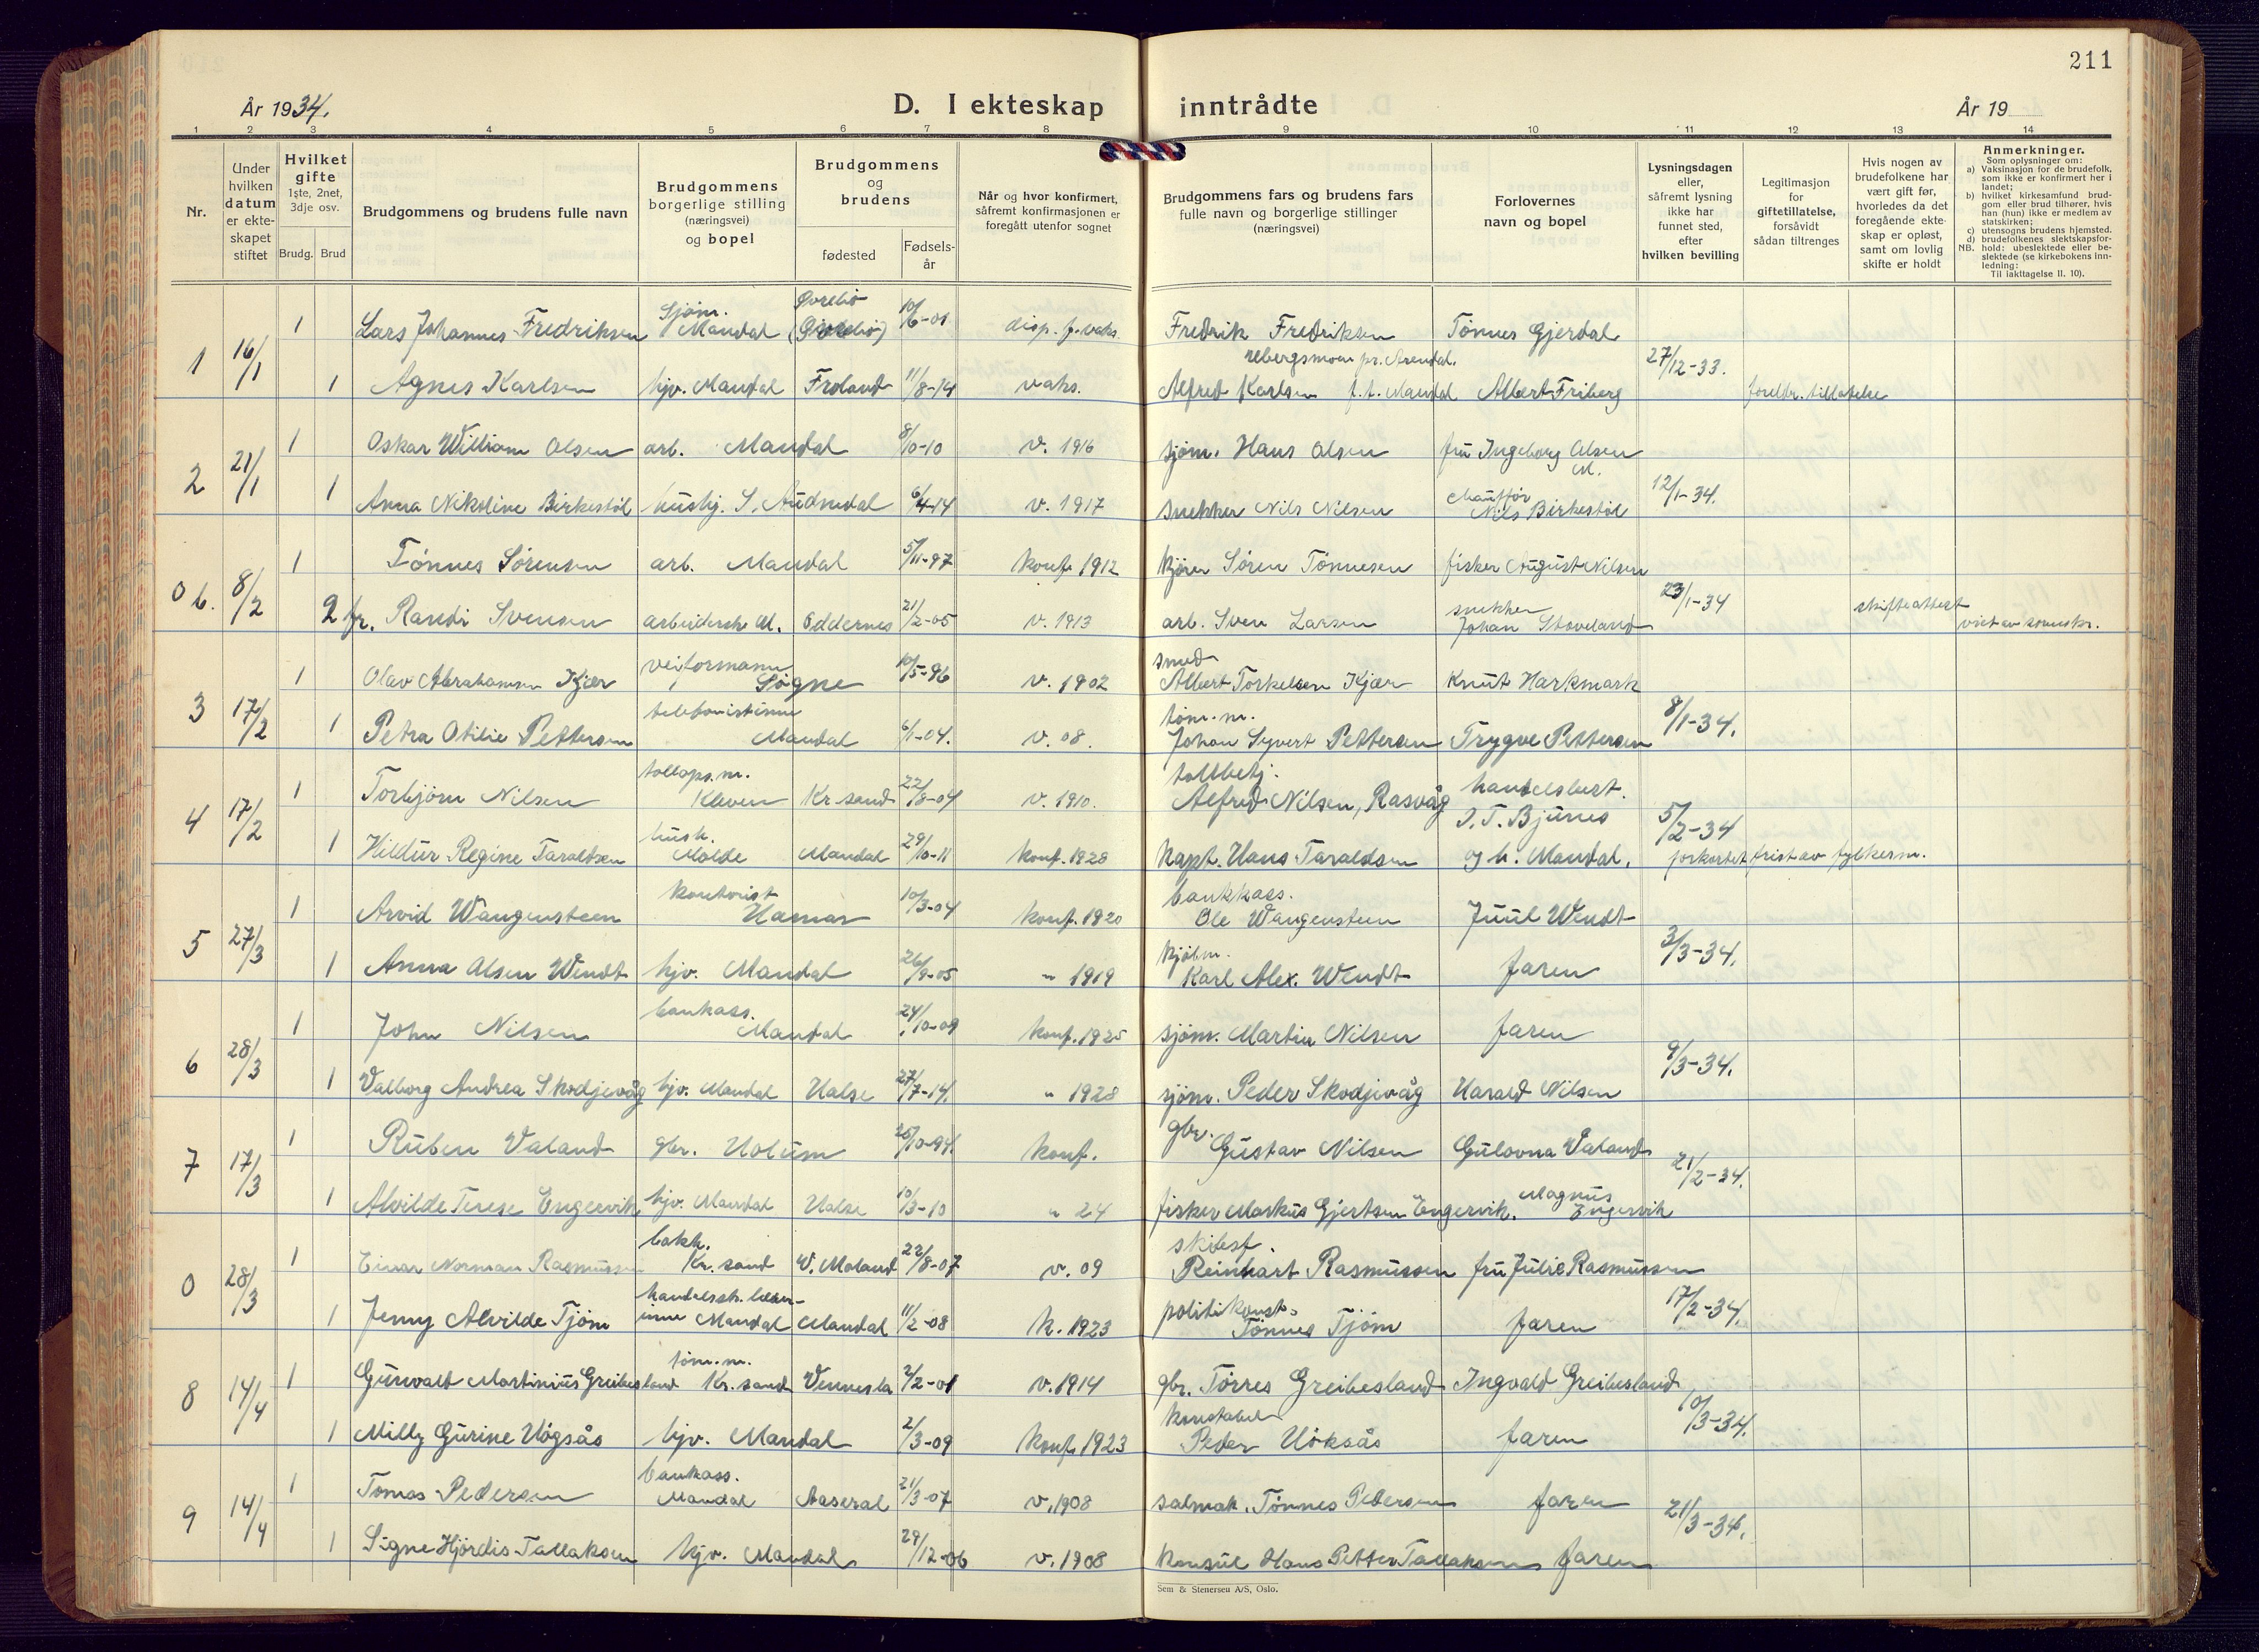 211
År 1934.
D. I ekteskap inntrådte
År 19
1 2 3 4 5 6 7 8 9 10 11 12 13 14
Nr.
Under hvilken datum er ekteskapet stiftet
Hvilket gifte 1ste, 2net, 3dje osv.
Brudg. Brud
Brudgommens og brudens fulle navn
Brudgommens borgerlige stilling (næringsvei) og bopel
Brudgommens og brudens
fødested
Fødsels-år
Når og hvor konfirmert, såfremt konfirmasjonen er foregått utenfor sognet
Brudgommens fars og brudens fars fulle navn og borgerlige stillinger (næringsvei)
Forlovernes navn og bopel
Lysningsdagen eller, såfremt lysning ikke har funnet sted, efter hvilken bevilling
Legitimasjon for giftetillatelse, forsåvidt sådan tiltrenges
Hvis nogen av brudefolkene har vært gift før, hvorledes da det foregående ekteskap er opløst, samt om lovlig skifte er holdt
Anmerkninger.
Som oplysninger om:
a) Vaksinasjon for de brudefolk, som ikke er konfirmert her i landet;
b) hvilket kirkesamfund brudgom eller brud tilhører, hvis han (hun) ikke er medlem av statskirken;
c) utensogns brudens hjemsted.
d) brudefolkenes slektskapsforhold; ubeslektede eller beslektede (se kirkebokens innledning:
NB.
Til iakttagelse II. 10).
1 16/1 1 Lars Johannes Fredriksen Sjøm. Mandal Øvrebø (Øvrebø) 10/6-01 disp. f. vaks. Fredrik Fredriksen Tönnes Gjerdal 27/12-33.
1 Agnes Karlsen hjv. Mandal Froland 11/8-14 vaks. Alfred Karlsen rebergsmoen pr. Arendal. f.t. Mandal Albert Friberg foreldr. tillatelse
2 21/1 1 Oskar William Olsen arb. Mandal 8/10-10 v. 1916 sjøm. Hans Olsen fru Ingeborg Olsen M. 12/1-34.
1 Anna Nikoline Birkestöl hushj. S. Audnedal 6/4-14 v. 1917 snekker Nils Nilsen chauffør Nils Birkestöl
0 b. 8/2 1 Tönnes Sörensen arb. Mandal 5/11-97 konf. 1912 kjörer Sören Tönnesen fisker August Nilsen 23/1-34
2 fr. Randi Svensen arbeiderske M. Oddernes 21/2-05 v. 1913 arb. Sven Larsen snekker Johan Stoveland skifteattest vist av sorenskr.
3 17/2 1 Olav Abrahamsen Kjær veiformann Søgne 10/5-96 v. 1902 smed Albert Torkelsen Kjær Knut Harkmark 8/1-34.
1 Petra Otilie Pettersen telefonistinne Mandal 6/1-04. v. 08. töm.m. Johan Syvert Pettersen Trygve Pettersen
4 17/2 1 Torbjörn Nilsen tollops.m. Kleven Kr.sand 22/8-04 v. 1910. tollbetj. Alfred Nilsen, Rasvåg handelsbest. 5/2-34
1 Hildur Regine Taraldsen hush. Molde Mandal 29/10-11 konf. 1928 kapt. Hans Taraldsen J. T. Bjunes og h. Mandal. forkortet frist av fylkesm.
5 27/3 1 Arvid Wangensteen kontorist Hamar 10/3-04 konf. 1920 bankkass. Ole Wangensteen Juul Wendt 3/3-34.
1 Anna Olsen Wendt hjv. Mandal 26/9-05 " 1919 kjöbm. Karl Alex. Wendt faren
6 28/3 1 John Nilsen bankass. Mandal 24/10-09 konf. 1925 sjöm. Martin Nilsen faren 9/3-34.
1 Valborg Andrea Skodjevåg hjv. Mandal Halse 27/7-14. " 1928 sjöm. Peder Skodjevåg Harald Nilsen
7 17/3 1 Ruben Valand gbr. Holum 25/10-94. konf. gbr. Gustav Nilsen Gulovna Valand 21/2-34.
1 Alvilde Terese Engervik hjv. Mandal Halse 10/3-10 " 24 fisker Markus Gjertsen Engervik. Magnus Engervik
0 28/3 1 Einar Norman Rasmussen bokh. Kr.sand V. Moland 22/8-07 v. 09 skibsf. Reinhart Rasmussen fru Julie Rasmussen 17/2-34.
1 Jenny Alvilde Tjöm handelssk. lærerinne Mandal Mandal 11/2-08 k. 1923 politikonst. Tönnes Tjöm faren
8 14/4 1 Gunvald Martinius Greibesland töm.m. Kr.sand Vennesla 2/2-01 v. 1914 gbr. Törres Greibesland Ingvald Greibesland 10/3-34.
1 Milly Gurine Högsås hjv. Mandal 2/3-09 konf. 1923 konstabel Peder Höksås faren
9 14/4 1 Tomas Pedersen bankass. Mandal Aaseral 21/3-07 v. 1908 salmak. Tönnes Pedersen faren 21/3-34.
1 Signe Hjördis Tallaksen hjv. Mandal 29/12-06 v. 1908 konsul Hans Petter Tallaksen faren
Sem & Stenersen A/S, Oslo.